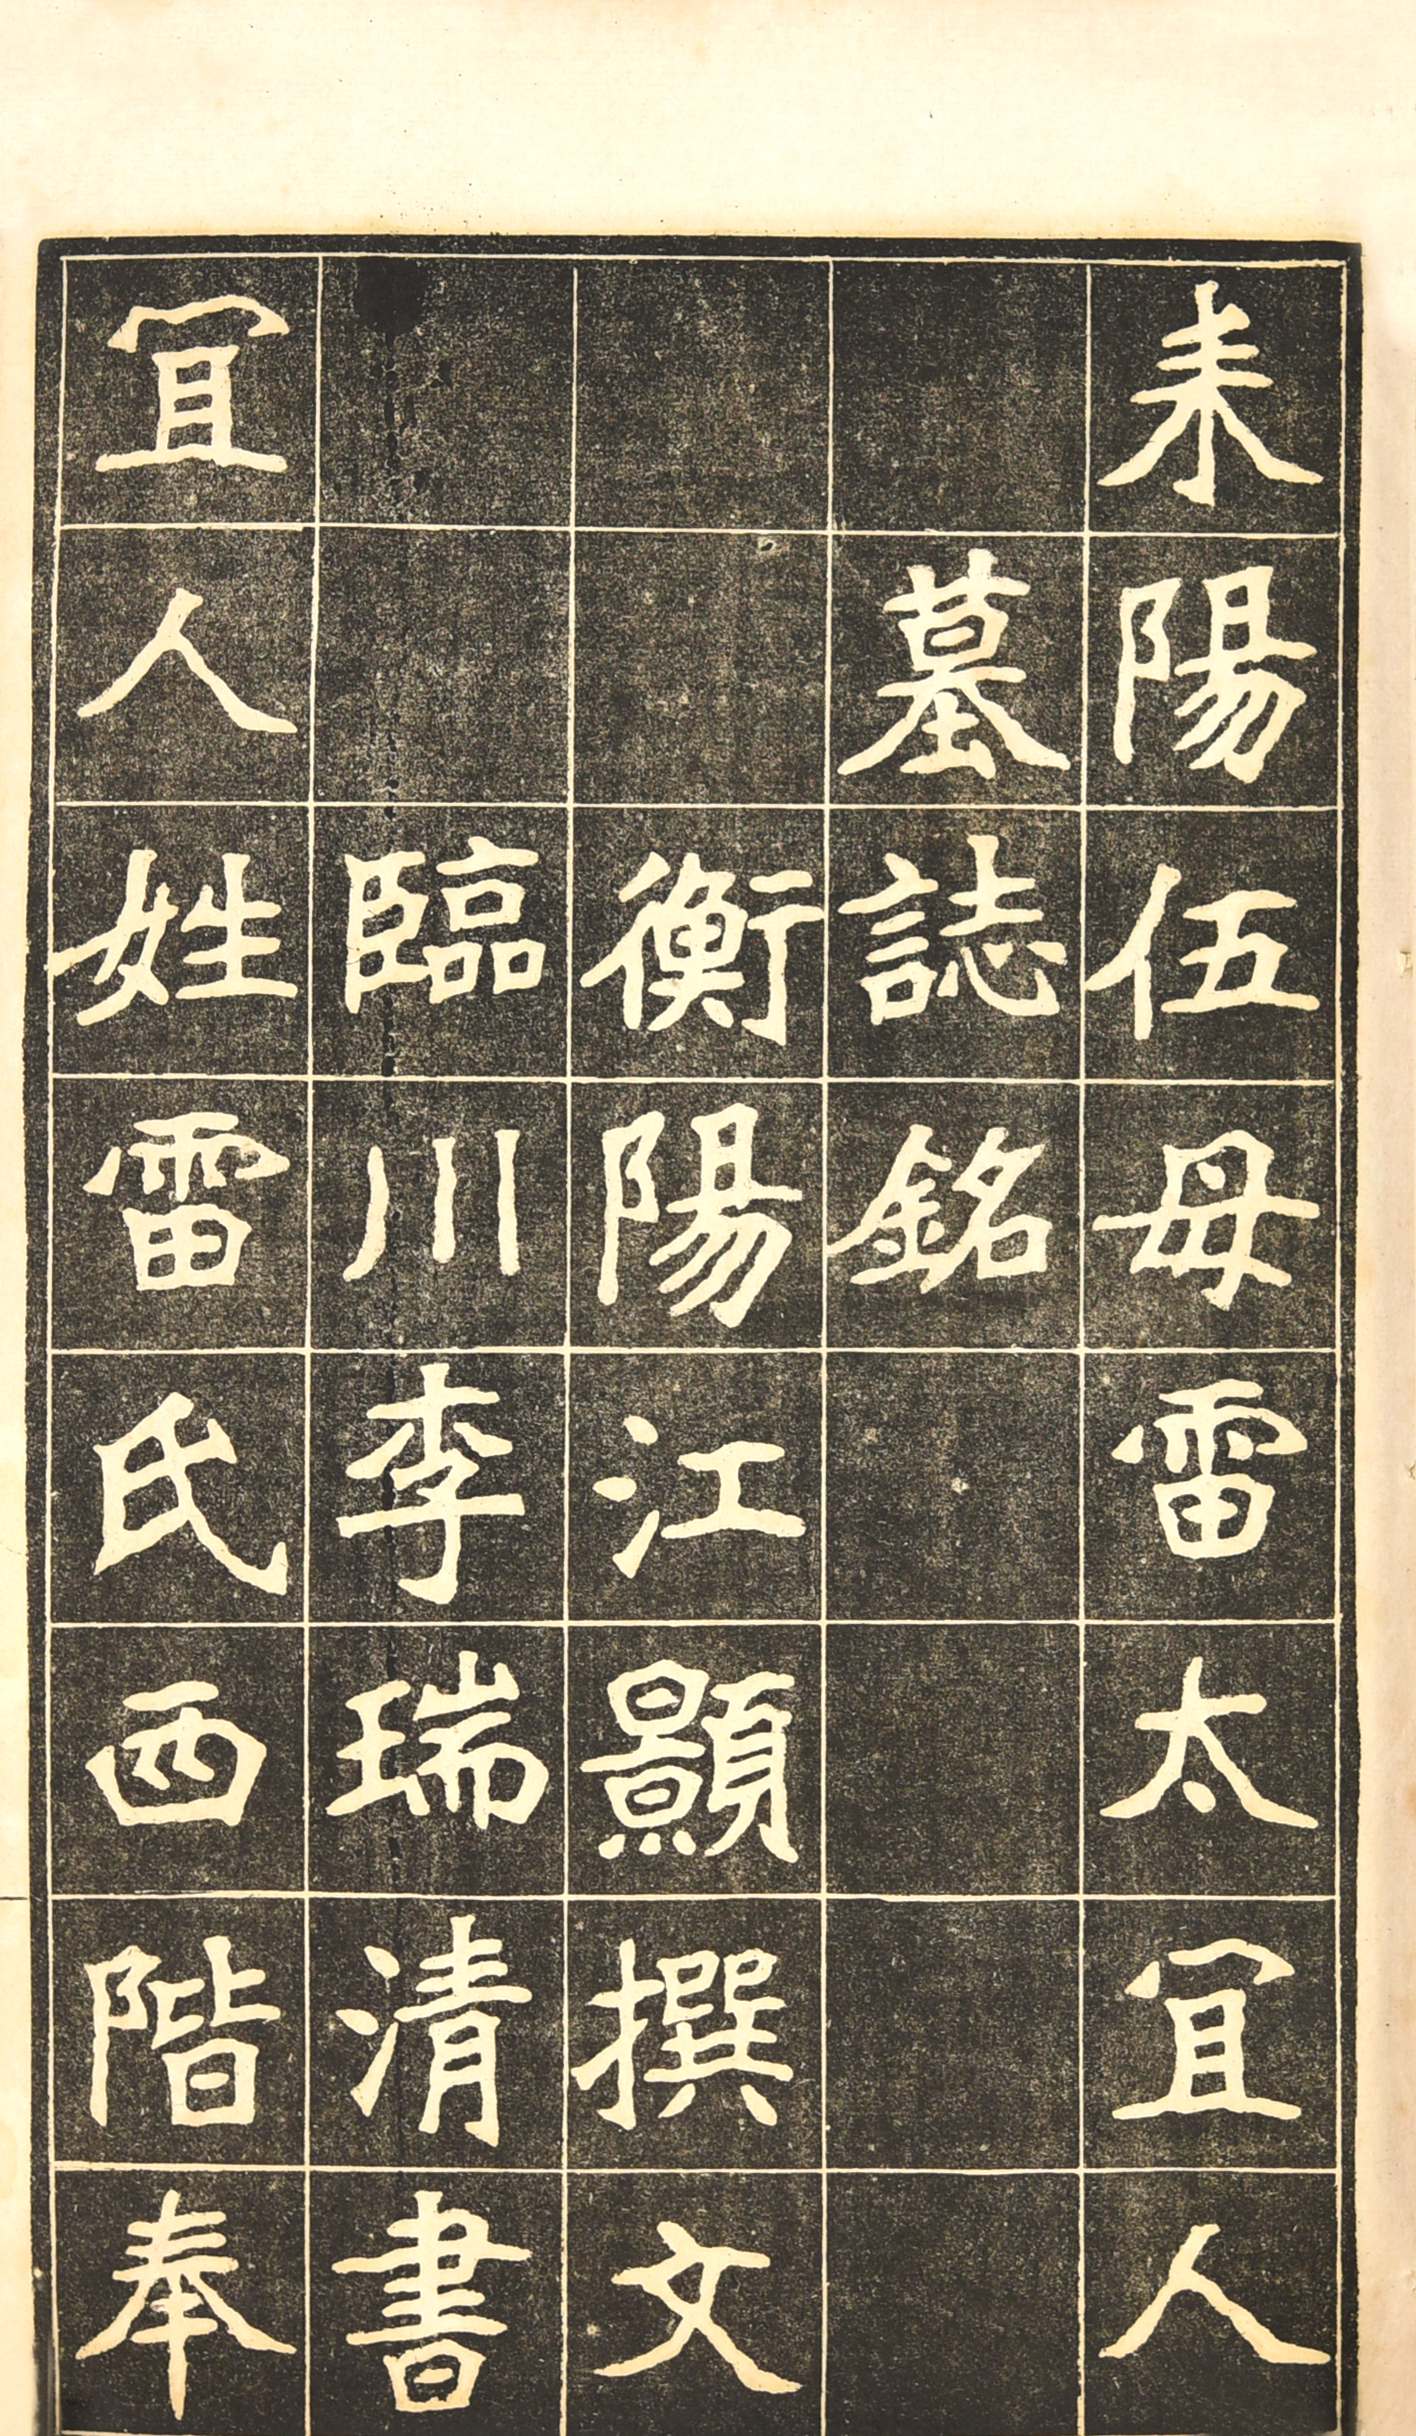 耒陽伍母雷太宜人
墓誌銘
衡陽江顥撰文
臨川李瑞清書
宜人姓雷氏西階奉